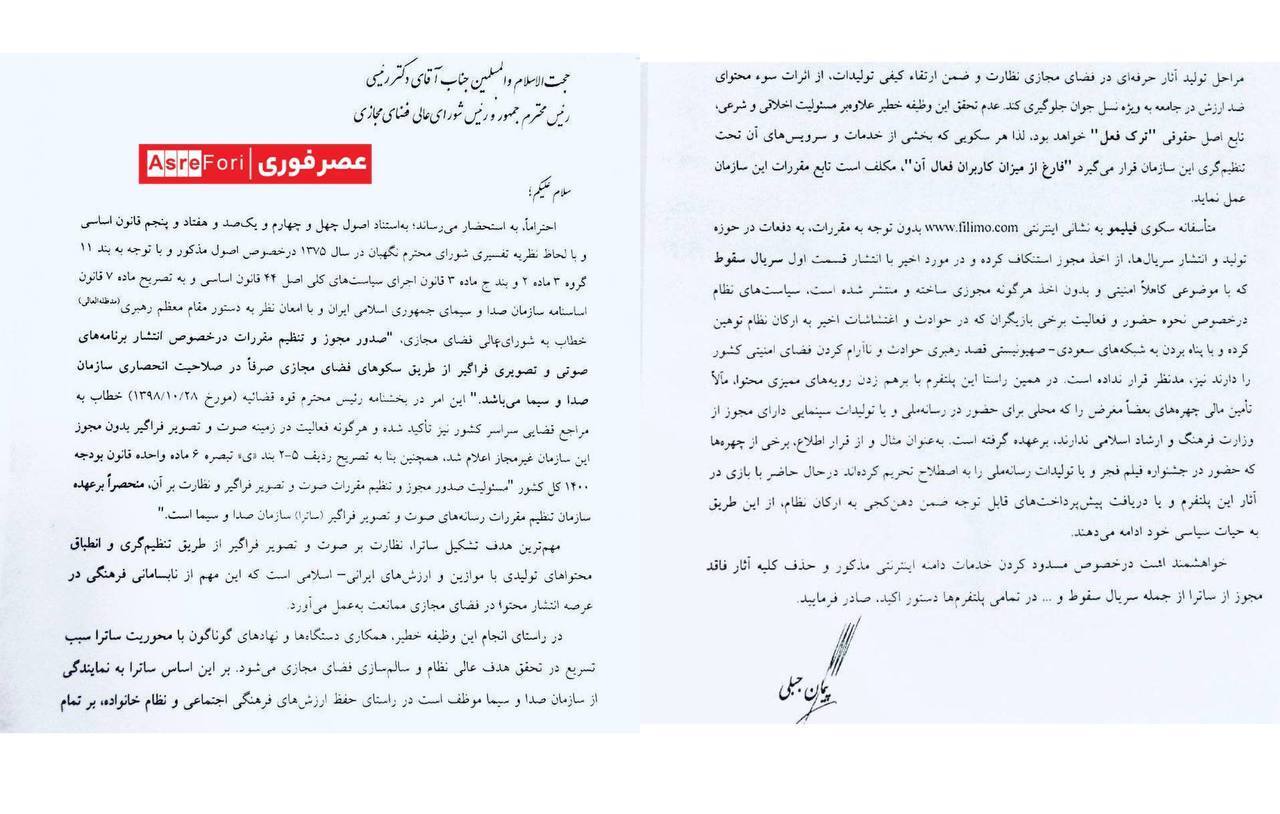 حجت‌الاسلام والمسلمین جناب آقای دکتر رئیسی
رئیس محترم جمهور و رئیس شورای‌عالی فضای مجازی
AsreFori | عصر فوری
سلام علیکم؛
احتراماً، به استحضار می‌رساند؛ به‌استناد اصول چهل و چهارم و یک‌صد و هفتاد و پنجم قانون اساسی
و با لحاظ نظریه تفسیری شورای محترم نگهبان در سال ۱۳۷۵ درخصوص اصول مذکور و با توجه به بند ۱۱
گروه ۳ ماده ۲ و بند ج ماده ۳ قانون اجرای سیاست‌های کلی اصل ۴۴ قانون اساسی و به تصریح ماده ۷ قانون
اساسنامه سازمان صدا و سیمای جمهوری اسلامی ایران و با امعان نظر به دستور مقام معظم رهبری (مدظله‌العالی)
خطاب به شورای‌عالی فضای مجازی، "صدور مجوز و تنظیم مقررات درخصوص انتشار برنامه‌های
صوتی و تصویری فراگیر از طریق سکوهای فضای مجازی صرفاً در صلاحیت انحصاری سازمان
صدا و سیما می‌باشد." این امر در بخشنامه رئیس محترم قوه قضائیه (مورخ ۱۳۹۸/۱۰/۲۸) خطاب به
مراجع قضایی سراسر کشور نیز تأکید شده و هرگونه فعالیت در زمینه صوت و تصویر فراگیر بدون مجوز
این سازمان غیرمجاز اعلام شد، همچنین بنا به تصریح ردیف ۵-۲ بند «ی» تبصره ۶ ماده واحده قانون بودجه
۱۴۰۰ کل کشور "مسئولیت صدور مجوز و تنظیم مقررات صوت و تصویر فراگیر و نظارت بر آن، منحصراً برعهده
سازمان تنظیم مقررات رسانه‌های صوت و تصویر فراگیر (ساترا) سازمان صدا و سیما است."
مهم‌ترین هدف تشکیل ساترا، نظارت بر صوت و تصویر فراگیر از طریق تنظیم‌گری و انطباق
محتواهای تولیدی با موازین و ارزش‌های ایرانی- اسلامی است که این مهم از نابسامانی فرهنگی در
عرصه انتشار محتوا در فضای مجازی ممانعت به‌عمل می‌آورد.
در راستای انجام این وظیفه خطیر، همکاری دستگاه‌ها و نهادهای گوناگون با محوریت ساترا سبب
تسریع در تحقق هدف عالی نظام و سالم‌سازی فضای مجازی می‌شود. بر این اساس ساترا به نمایندگی
از سازمان صدا و سیما موظف است در راستای حفظ ارزش‌های فرهنگی اجتماعی و نظام خانواده، بر تمام
مراحل تولید آثار حرفه‌ای در فضای مجازی نظارت و ضمن ارتقاء کیفی تولیدات، از اثرات سوء محتوای
ضد ارزش در جامعه به ویژه نسل جوان جلوگیری کند. عدم تحقق این وظیفه خطیر علاوه‌بر مسئولیت اخلاقی و شرعی،
تابع اصل حقوقی "ترک فعل" خواهد بود، لذا هر سکویی که بخشی از خدمات و سرویس‌های آن تحت
تنظیم‌گری این سازمان قرار می‌گیرد "فارغ از میزان کاربران فعال آن"، مکلف است تابع مقررات این سازمان
عمل نماید.
متأسفانه سکوی فیلیمو به نشانی اینترنتی www.filimo.com بدون توجه به مقررات، به دفعات در حوزه
تولید و انتشار سریال‌ها، از اخذ مجوز استنکاف کرده و در مورد اخیر با انتشار قسمت اول سریال سقوط
که با موضوعی کاملاً امنیتی و بدون اخذ هرگونه مجوزی ساخته و منتشر شده است، سیاست‌های نظام
درخصوص نحوه حضور و فعالیت برخی بازیگران که در حوادث و اغتشاشات اخیر به ارکان نظام توهین
کرده و با پناه بردن به شبکه‌های سعودی-صهیونیستی قصد رهبری حوادث و ناآرام کردن فضای امنیتی کشور
را دارند نیز، مدنظر قرار نداده است. در همین راستا این پلتفرم با برهم زدن رویه‌های ممیزی محتوا، مآلاً
تأمین مالی چهره‌های بعضاً مغرض را که محلی برای حضور در رسانه‌ملی و یا تولیدات سینمایی دارای مجوز از
وزارت فرهنگ و ارشاد اسلامی ندارند، برعهده گرفته است. به‌عنوان مثال و از قرار اطلاع، برخی از چهره‌ها
که حضور در جشنواره فیلم فجر و یا تولیدات رسانه‌ملی را به اصطلاح تحریم کرده‌اند درحال حاضر با بازی در
آثار این پلتفرم و یا دریافت پیش‌پرداخت‌های قابل توجه ضمن دهن‌کجی به ارکان نظام، از این طریق
به حیات سیاسی خود ادامه می‌دهند.
خواهشمند است درخصوص مسدود کردن خدمات دامنه اینترنتی مذکور و حذف کلیه آثار فاقد
مجوز از ساترا از جمله سریال سقوط و ... در تمامی پلتفرم‌ها دستور اکید، صادر فرمایید.
پیمان جبلی